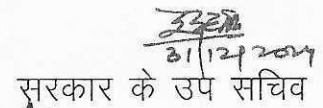 31/12/2024
सरकार के उप सचिव